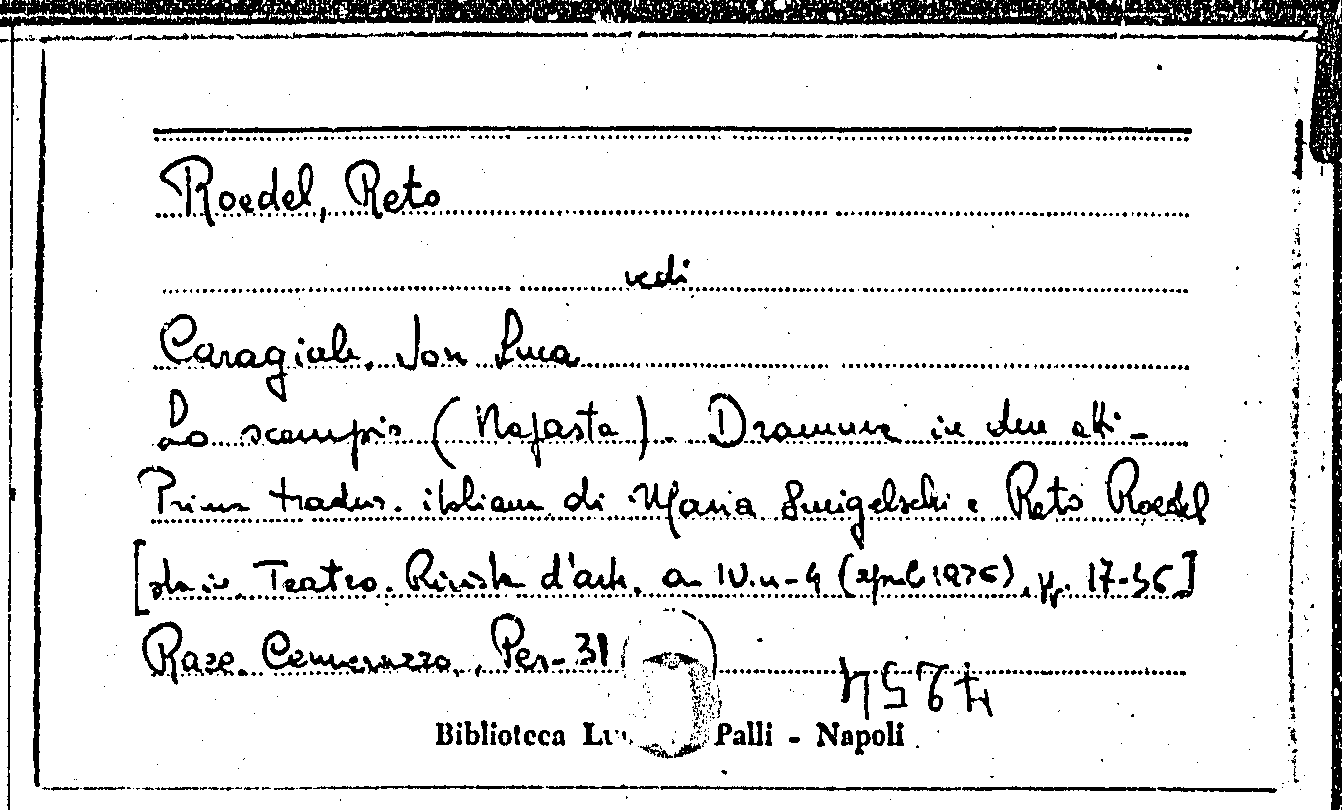 Roedel, Reto
vedi
Caragiale, Ion Luca
Lo scempio (Napasta). Dramma in due atti -
Prima traduz. italiana di Maria Smigelschi e Reto Roedel
[sta in Teatro. Rivista d'arte, a. IV. n. 4 (april 1926), pp. 17-36]
Racc. Cennerazzo, Per. 31
Biblioteca Lu Palli - Napoli